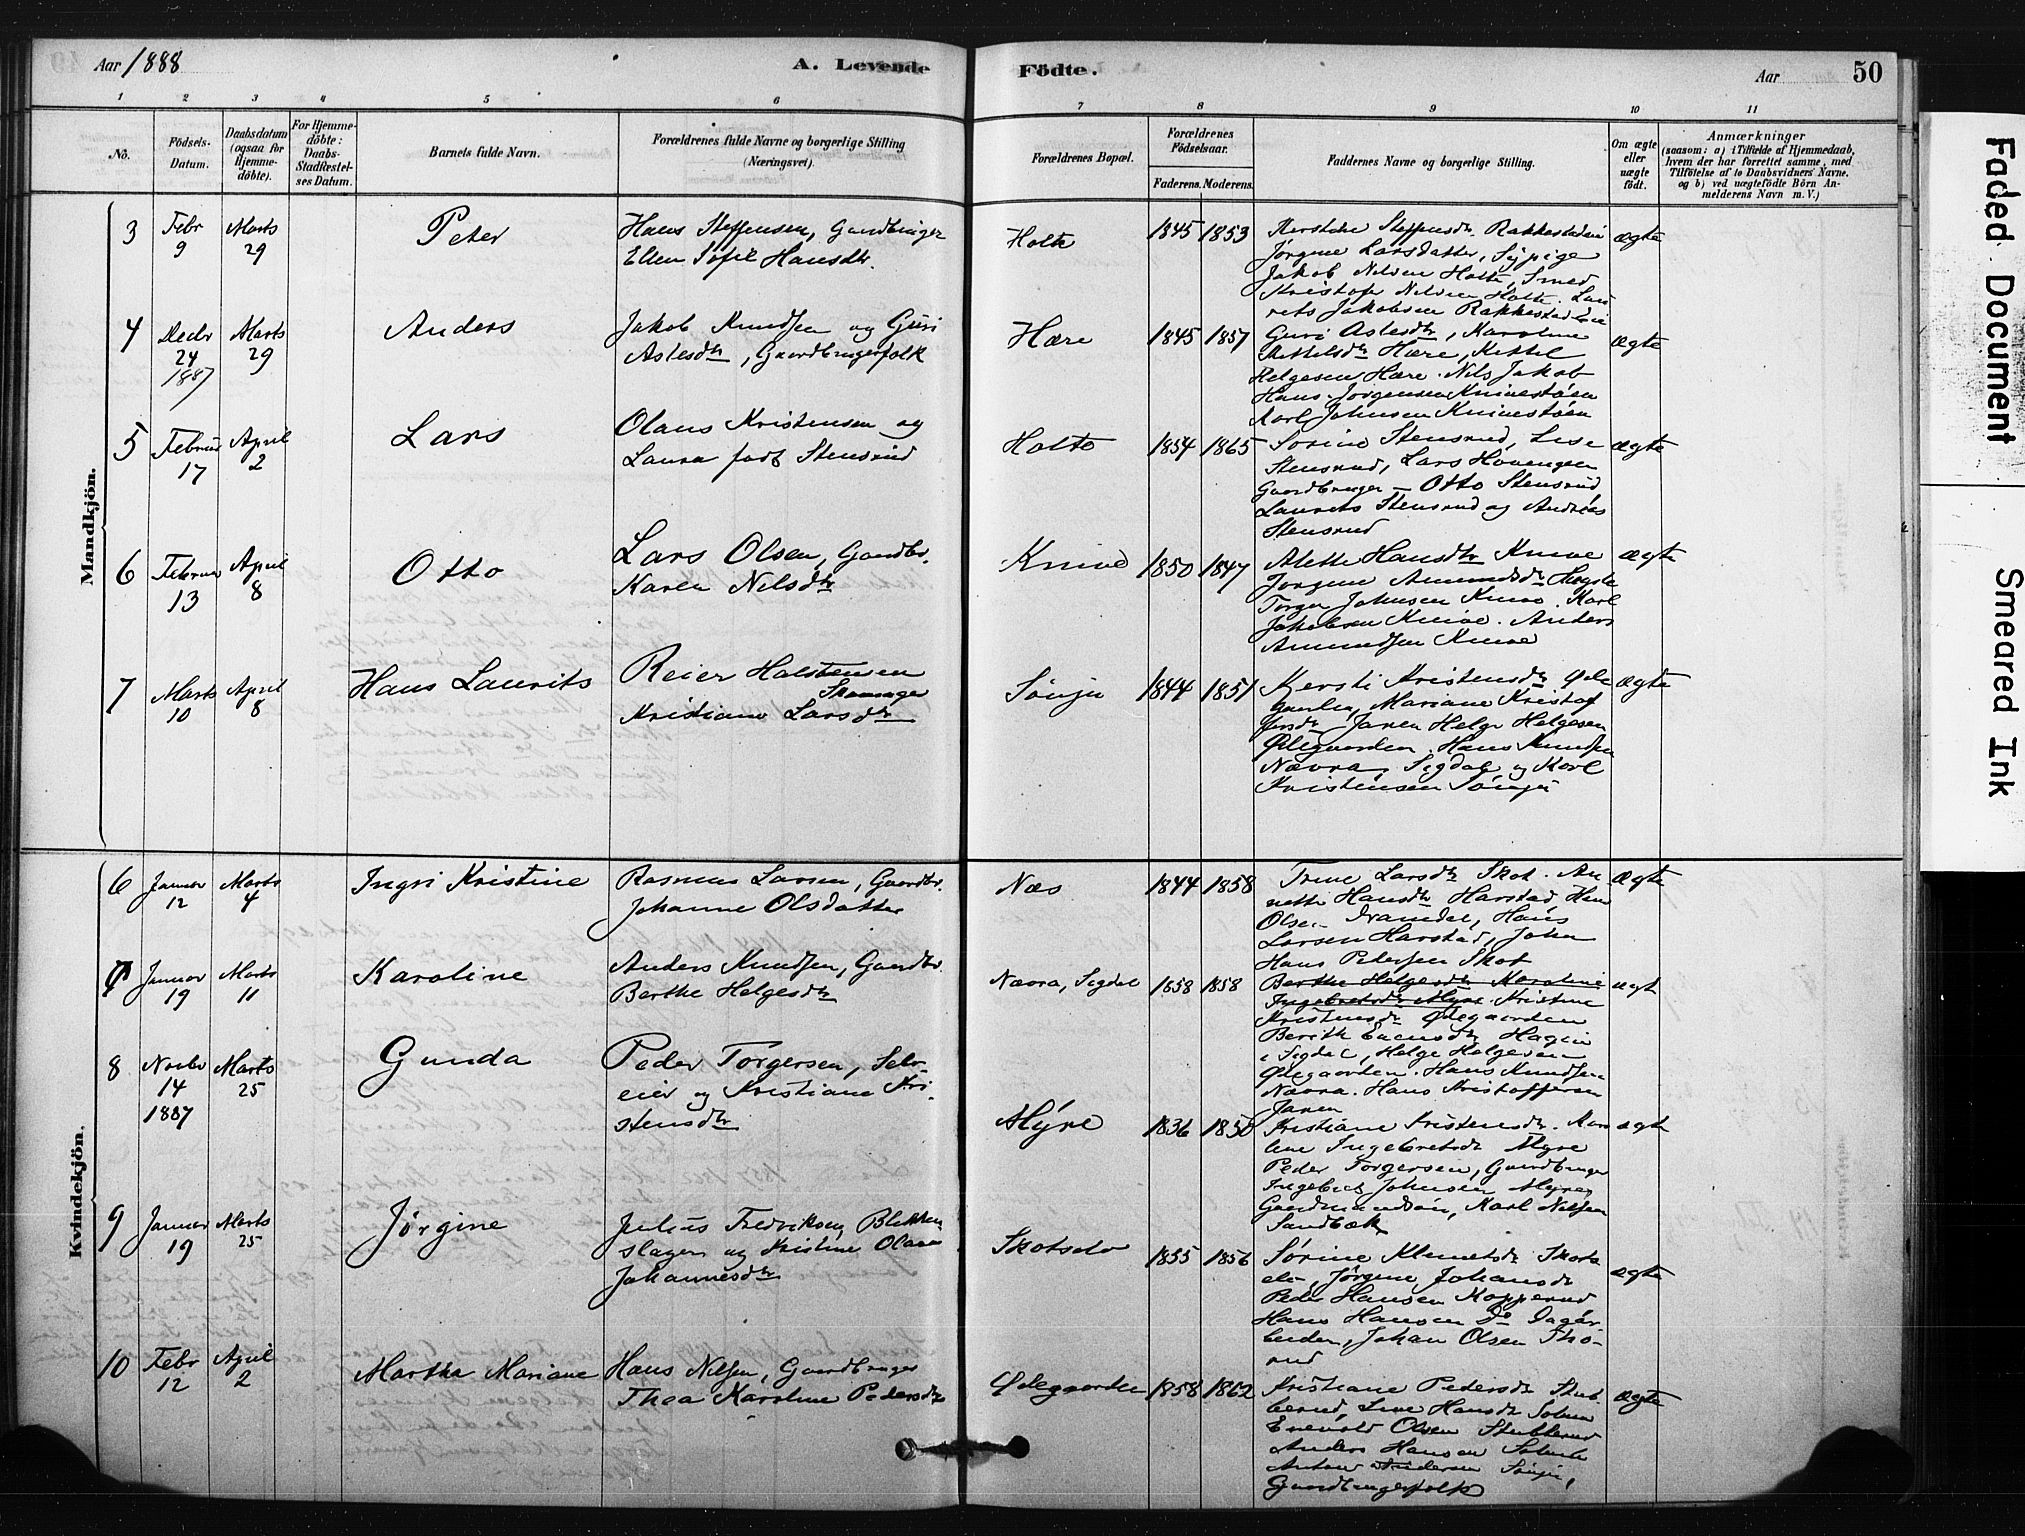 Aar 1888
A. Levende
Födte.
Aar
50
1 2 3 4 5 6 7 8 9 10 11
No.
Födsels-
Datum.
Daabsdatum
(ogsaa for
Hjemme-
döbte).
For Hjemme-
döbte:
Daabs-
Stadfæstel-
ses Datum.
Barnets fulde Navn.
Forældrenes fulde Navne og borgerlige Stilling
(Næringsvei).
Forældrenes Bopæl.
Forældrenes
Födselsaar.
Faderens. Moderens.
Faddernes Navne og borgerlige Stilling.
Om ægte
eller
uægte
födt.
Anmærkninger
(saasom: a) i Tilfælde af Hjemmedaab,
hvem der har forrettet samme, med
Tilföielse af to Daabsvidners Navne.
og b) ved uægtefödte Börn An-
melderens Navn m. V.)
Mandkjön.
3
Febr
9
Marts
29
Peter
Hans Steffensen, Gaardbruger
Ellen Sofie Hansdtr.
Holte
1845 1853
Steffensdtr Rakkestadeie
Jørgine Larsdatter, Sypige
Jakob Nilsen Holte, Smed
Kristofer Nilsen Holte. Lau
rits Jakobsen Rakkestadeie
ægte
4
Decbr
24
1887
Marts
29
Anders
Jakob Knudsen og Guri
Astesdtr, Gaardbrugerfolk
Hære
1845 1857
Guri Astesdtr, Karoline
Kittelsdtr Hære, Kittel
Helgesen Hære. Nils Jakob
Hans Jørgensen Knivestøen
Karl Johnsen Knivestøen
ægte
5
Februar
17
April
2
Lars
Olaus Kristensen og
Laura født Stensrud
Holte
1854 1865
Sorine Stensrud, Lise
Stensrud, Lars Hovengen
Gaardbruger – Otto Stensrud
Laurits Stensrud og Andreas
Stensrud
ægte
6
Februar
13
April
8
Otto
Lars Olsen, Gaardbr.
Karen Nilsdtr
Knive
1850 1847
Alette Hansdtr Knive
Jørgine Amundsdtr
Torger Johnsen Knive. Karl
Jakobsen Knive. Anders
Amundsen Knive
ægte
7
Marts
10
April
8
Hans Laurits
Reier Halstensen
Skomager
Kristiane Larsdtr
Sønju
1844 1851
Kjersti Kristensdtr Øde
gaarden, Mariane Kristof
fersdtr Jaren Helge Helgesen
Ødegaarden. Hans Knudsen
Nævra, Sigdal og Karl
Kristensen Sønju
ægte
Kvindekjön.
6
Januar
12
Marts
4
Ingri Kristine
Rasmus Larsen, Gaardbr.
Johanne Olsdatter
Næs
1844 1858
Trine Larsdtr Skot. An
nette Hansdtr Harstad, Hans
Olsen Dramdal, Hans
Larsen Harstad, John
Hans Petersen Skot
ægte
7
Januar
19
Marts
11
Karoline
Anders Knudsen, Gaardbr.
Berthe Helgesdtr
Nævra, Sigdal
1858 1858
Berthe Helgesdtr Karoline
Ingebretsdtr Myre Kristine
Kristensdtr Ødegaarden
Berith Evensdtr Hagen
i Sigdal, Helge Helgesen
Ødegaarden. Hans Knudsen
Nævra. Hans Kristoffersen
Jaren
ægt
8
Novbr
14
1887
Marts
25
Gunda
Peder Torgersen, Selv-
eier og Kristiane Kri
stensdtr
Myre
1836 1850
Kristiane Kristensdtr. Kar
line Ingebretsdtr Myre
Peder Torgersen, Gaardbruger
Ingebret Johnsen Myre,
Gaardmandsøn, Karl Nilsen
Sandbæk
ægt
9
Januar
19
Marts
25
Jørgine
Julius Fredriksen, Blikken
slager og Kristine Olava
Johannesdtr
Skotselv
1855 1856
Sørine Klemetsdtr Skots
elv, Jørgine Johansdtr
Peder Hansen Kopperud
Hans Hansen Do Dagar
beider, Johan Olsen Thø-
rud
ægte
10
Febr
12
April
2
Martha Mariane
Hans Nilsen, Gaardbruger
Thea Karoline Pedersdtr
Ødegaarden
1858 1862
Kristiane Pedersdtr Stub
berud, Line Hansdtr
Enevold Olsen Stubberud
Anders Hansen
Anton Andersen Sønju,
Gaardbrugerfolk
ægte
Faded Document
Smeared Ink